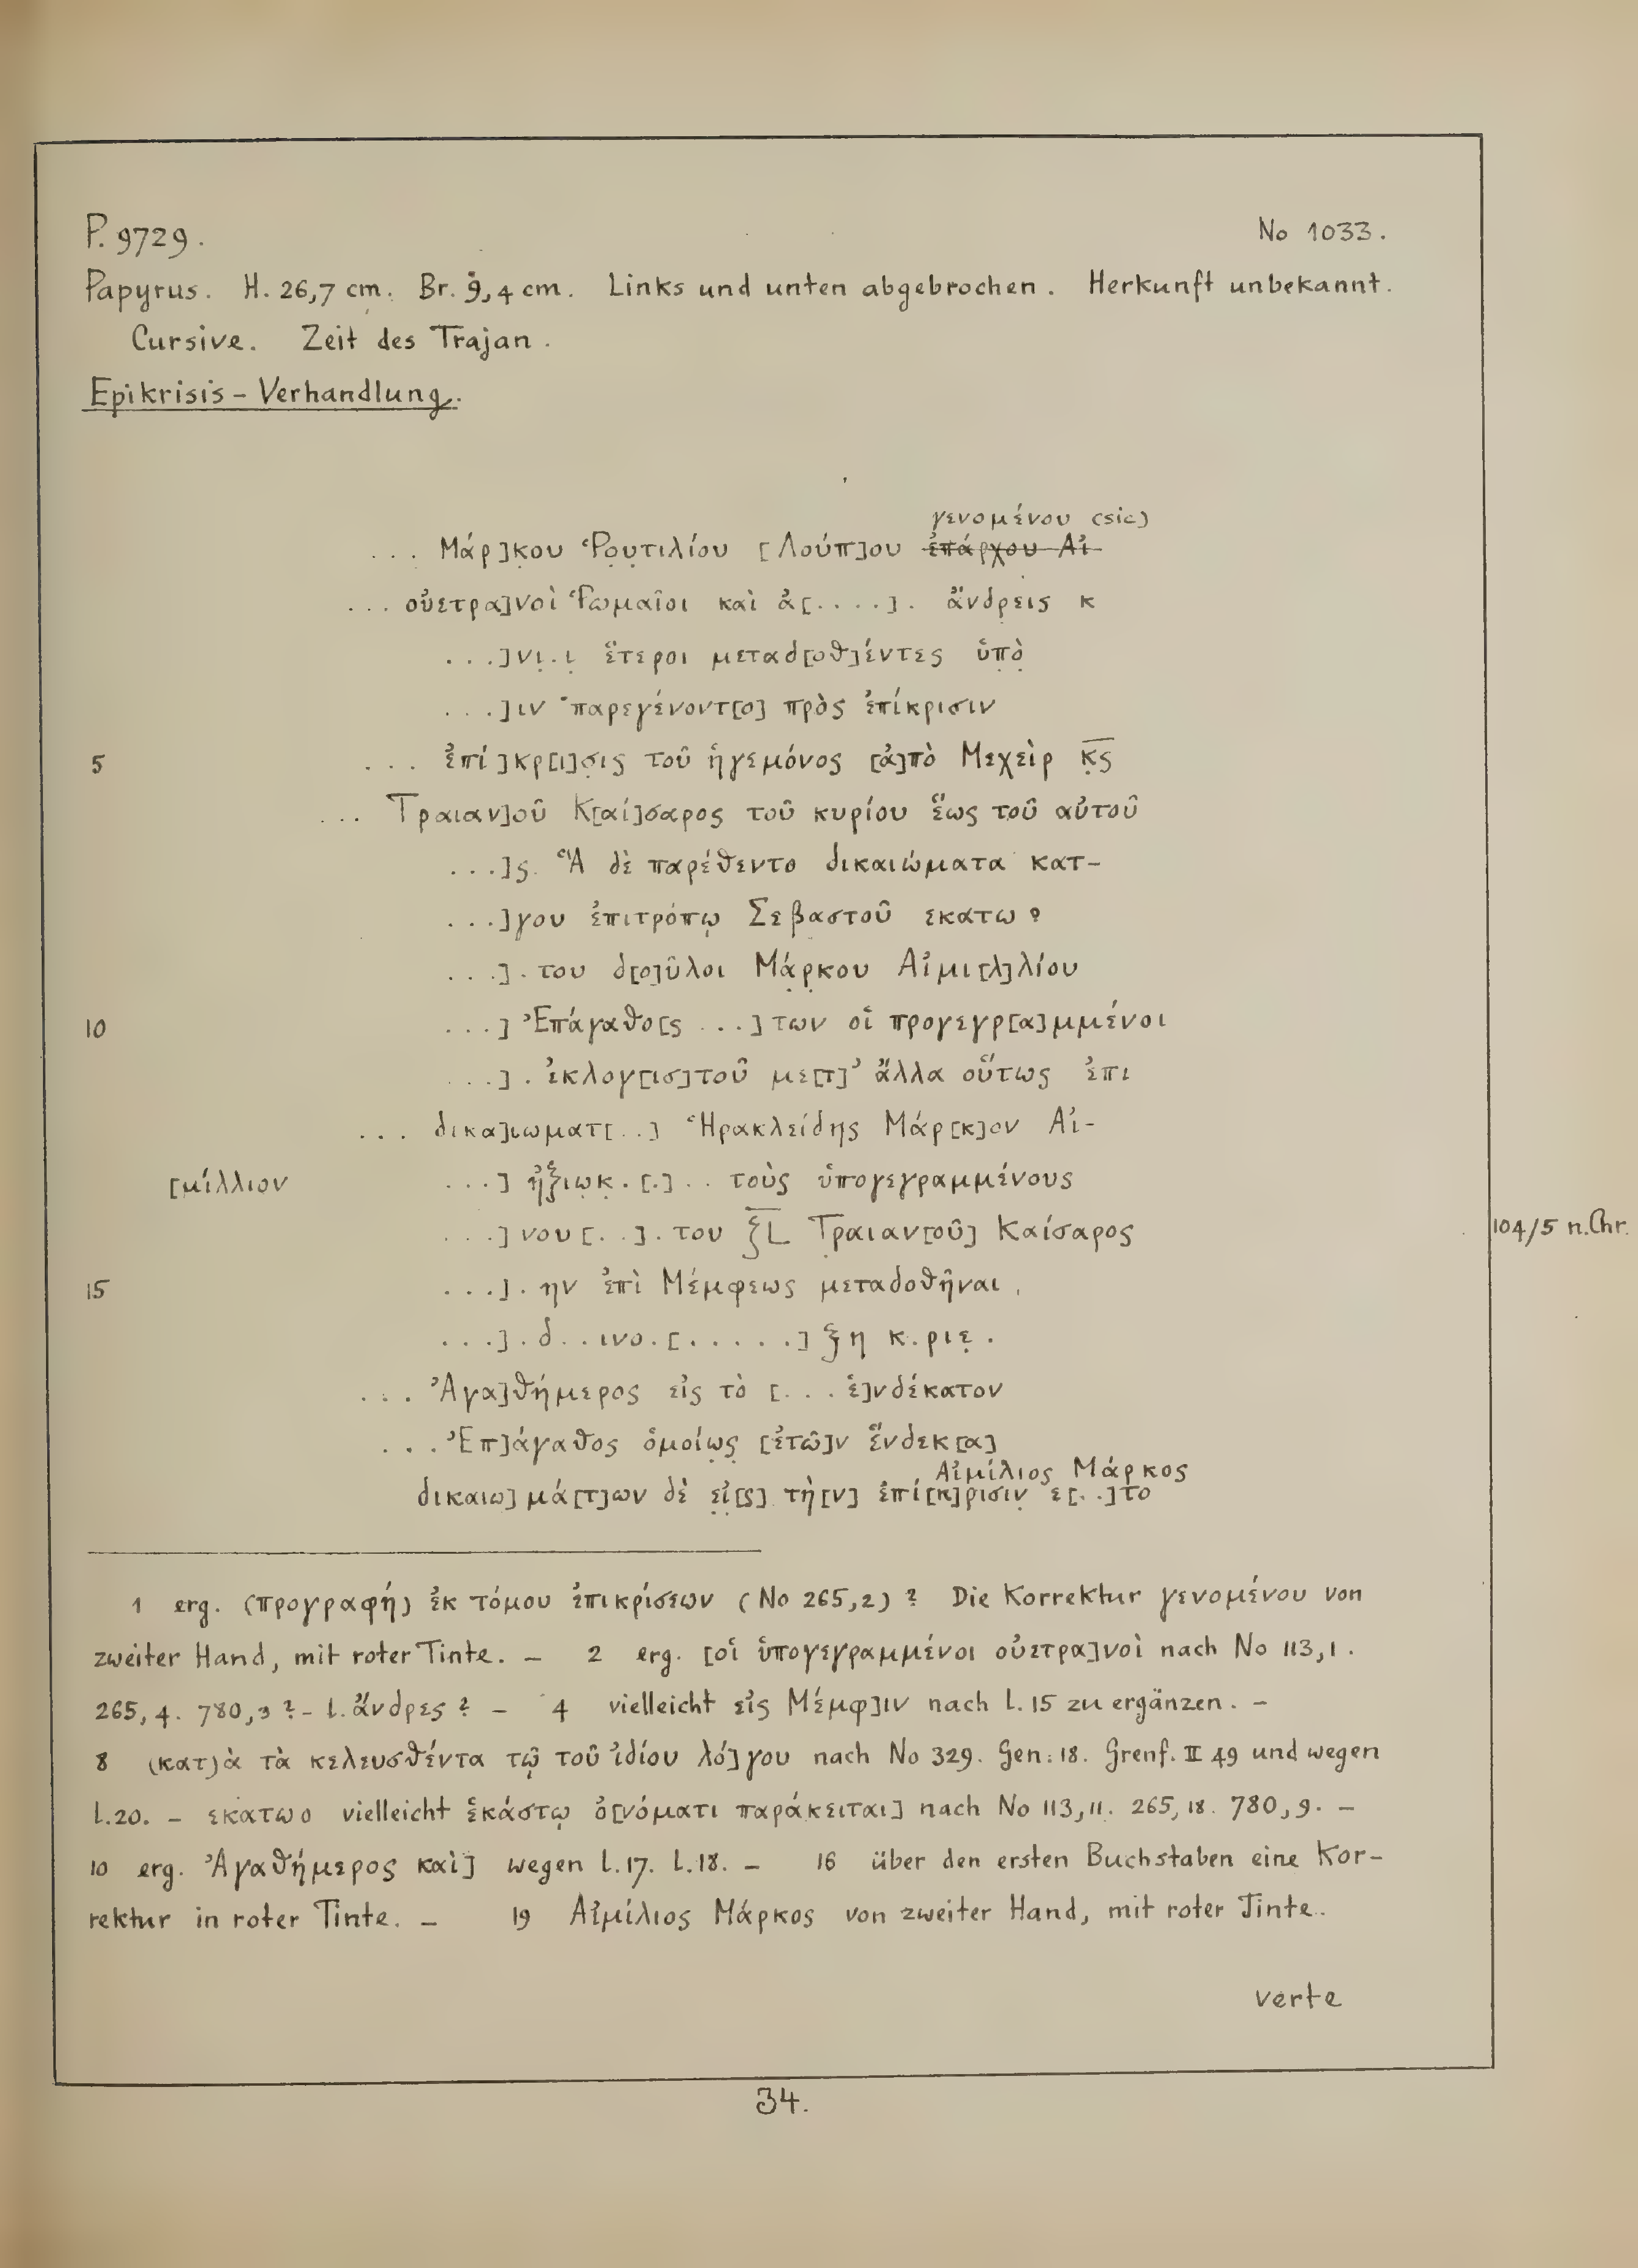 P. 9729.
No 1033.
Papyrus. H. 26,7 cm. Br. 9,4 cm. Links und unten abgebrochen. Herkunft unbekannt.
Cursive. Zeit des Trajan.
Epikrisis-Verhandlung.
γενομένου (sic)
... Μάρ]κου Ῥουτιλίου [Λούπ]ου ἐπάρχου Αἰ-
... οὐετρα]νοὶ Ῥωμαῖοι καὶ ἀ[....]. ἄνδρεις κ
...]νι.ι ἕτεροι μεταδ[οθ]έντες ὑπὸ
...]ιν παρεγένοντ[ο] πρὸς ἐπίκρισιν
5 ... ἐπί]κρ[ι]σις τοῦ ἡγεμόνος [ἀ]πὸ Μεχεὶρ κ̅ς̅
... Τραιαν]οῦ Κ[αί]σαρος τοῦ κυρίου ἕως τοῦ αὐτοῦ
...]ς. Ἃ δὲ παρέθεντο δικαιώματα κατ-
...]γου ἐπιτρόπῳ Σεβαστοῦ εκατω ο
...]. του δ[ο]ῦλοι Μάρκου Αἰμι[λ]λίου
10 ...] Ἐπάγαθο[ς ...]των οἱ προγεγρ[α]μμένοι
...]. ἐκλογ[ισ]τοῦ με[τ]' ἄλλα οὕτως ἐπι
... δικα]ιωματ[..] Ἡρακλείδης Μάρ[κ]ον Αἰ-
[μίλλιον ...] ἠξιωκ.[.].. τοὺς ὑπογεγραμμένους
...]νου[..]. του ξ̅L Τραιαν[οῦ] Καίσαρος 104/5 n.Chr.
15 ...]. ην ἐπὶ Μέμφεως μεταδοθῆναι
...]. δ..ινο.[.....]ξη κ.ριε.
... Ἀγα]θήμερος εἰς τὸ [... ἑ]νδέκατον
... Ἐπ]άγαθος ὁμοίως [ἐτῶ]ν ἕνδεκ[α]
Αἰμίλιος Μάρκος
δικαιω]μά[τ]ων δὲ εἰ[ς] τὴ[ν] ἐπί[κ]ρισιν ε[..]το
1 erg. (προγραφή) ἐκ τόμου ἐπικρίσεων (No 265,2)? Die Korrektur γενομένου von
zweiter Hand, mit roter Tinte. — 2 erg. [οἱ ὑπογεγραμμένοι οὐετρα]νοὶ nach No 113,1.
265,4. 780,3? - l. ἄνδρες? — 4 vielleicht εἰς Μέμφ]ιν nach l. 15 zu ergänzen. —
8 (κατ)ὰ τὰ κελευσθέντα τῷ τοῦ ἰδίου λό]γου nach No 329. Gen. 18. Grenf. II 49 und wegen
l. 20. — εκατωο vielleicht ἑκάστῳ ὀ[νόματι παράκειται] nach No 113,11. 265,18. 780,9. —
10 erg. Ἀγαθήμερος καὶ] wegen l. 17. l. 18. — 16 über den ersten Buchstaben eine Kor-
rektur in roter Tinte. — 19 Αἰμίλιος Μάρκος von zweiter Hand, mit roter Tinte.
verte
34.